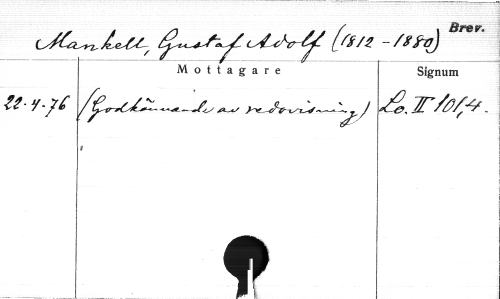 Mankell, Gustaf Adolf (1812-1880) Brev.
Mottagare Signum
22.4.76 (Godkännande av redovisning) Lo. II 101,4.